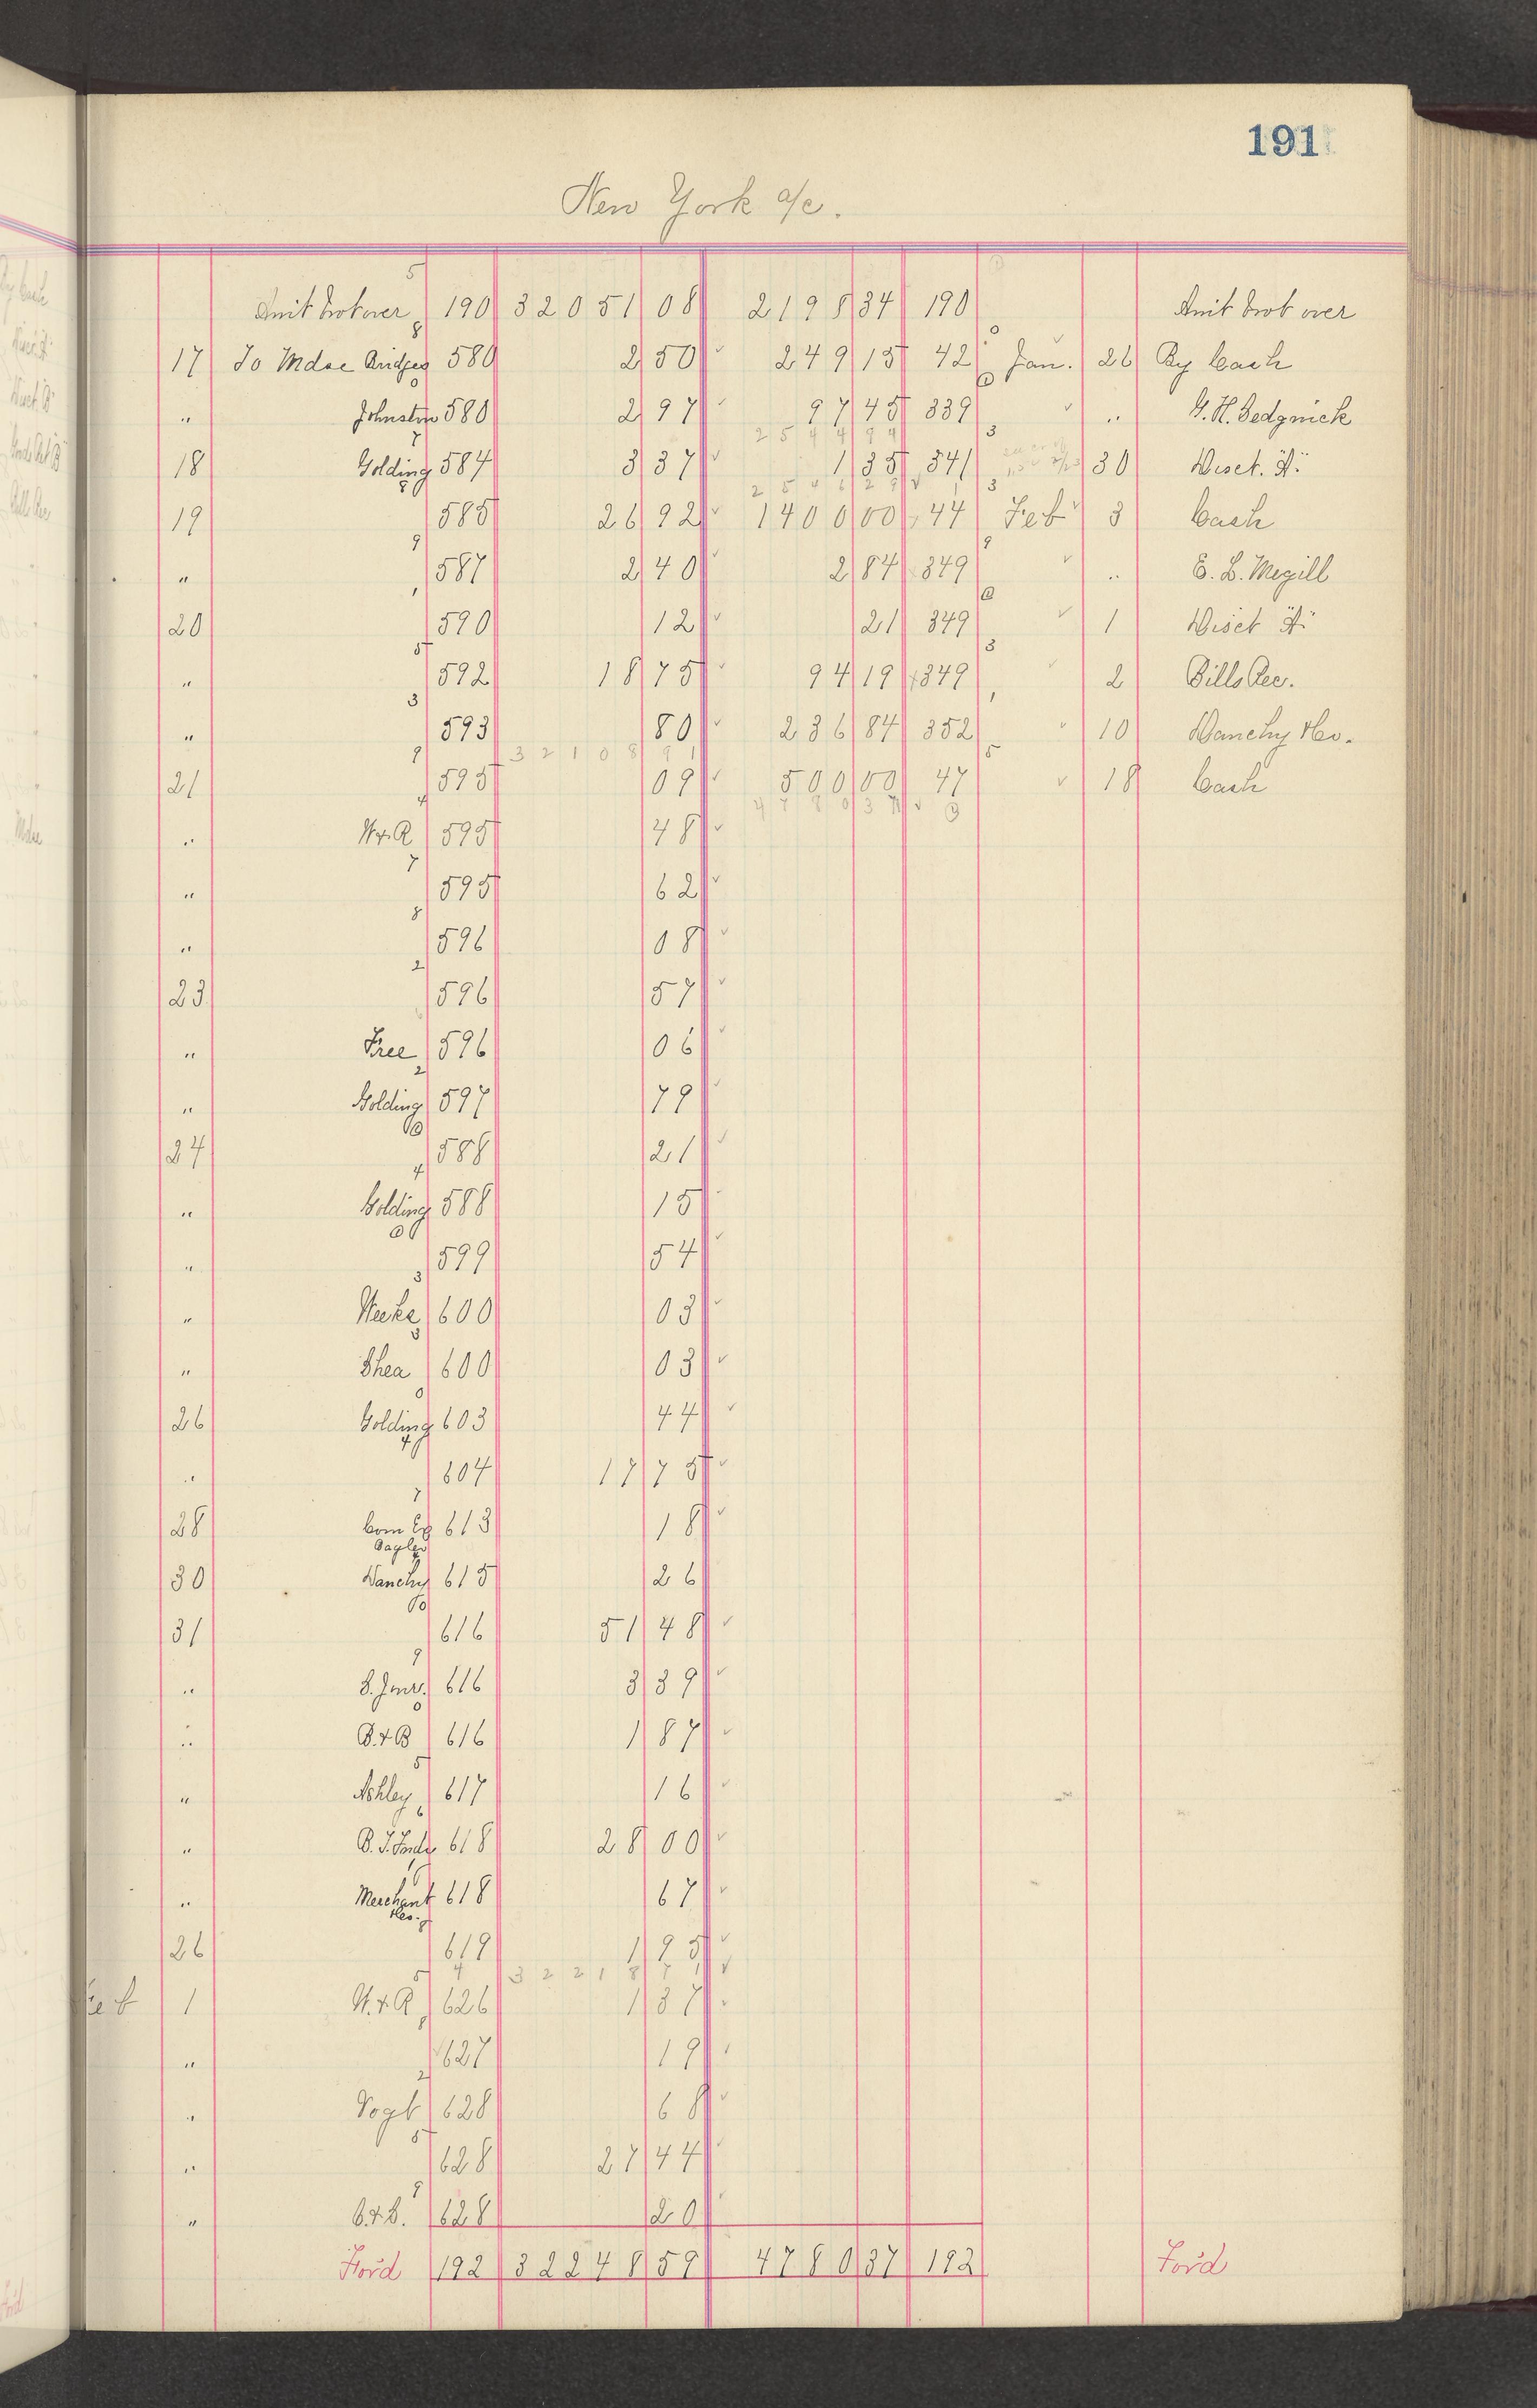 191
New York a/c.
Amt brot over 190 32051 08 2198 34 190 Amt brot over
17 To Mdse Bridges 580 2 50 249 15 42 Jan. 26 By Cash
" Johnston 580 2 97 97 45 339 " G. H. Sedgwick
2544 94
18 Golding 584 3 37 1 35 341 30 Disct. a/c
2546 29
19 585 26 92 1400 00 44 Feb 3 Cash
" 587 2 40 2 84 349 " E. L. Megill
20 590 12 21 349 1 Disct a/c
" 592 18 75 94 19 349 2 Bills Rec.
" 593 80 236 84 352 10 Manchy Hos.
32108 91
21 595 09 500 00 47 18 Cash
4780 37
" W. & R 595 48
" 595 62
" 596 08
23 596 57
" Free 596 06
" Golding 597 79
24 588 21
" Golding 588 15
" 599 54
" Weeks 600 03
" Shea 600 03
26 Golding 603 44
" 604 17 75
28 Com Eg 613 18
30 Manchy 615 26
31 616 51 48
" S. Jones 616 3 39
" B. & B 616 1 87
" Ashley 617 16
" 618 28 00
" Merchant 618 67
26 619 1 95
32218 71
Feb 1 W. & R 626 1 37
" 627 19
" Vogt 628 68
" 628 27 44
" C. & C. 628 20
Ford 192 32248 59 4780 37 192 Ford